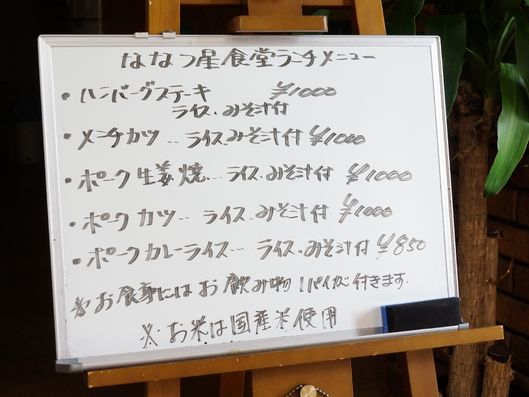 ななつ星食堂ランチメニュー
・ハンバーグステーキ ¥1000
ライス、みそ汁付
・メンチカツ‥ライス、みそ汁付 ¥1000
・ポーク生姜焼…ライス、みそ汁付 ¥1000
・ポークカツ‥ライス、みそ汁付 ¥1000
・ポークカレーライス…ライス、みそ汁付 ¥850
※お食事にはお飲み物1パイが付きます.
※お米は国産米使用